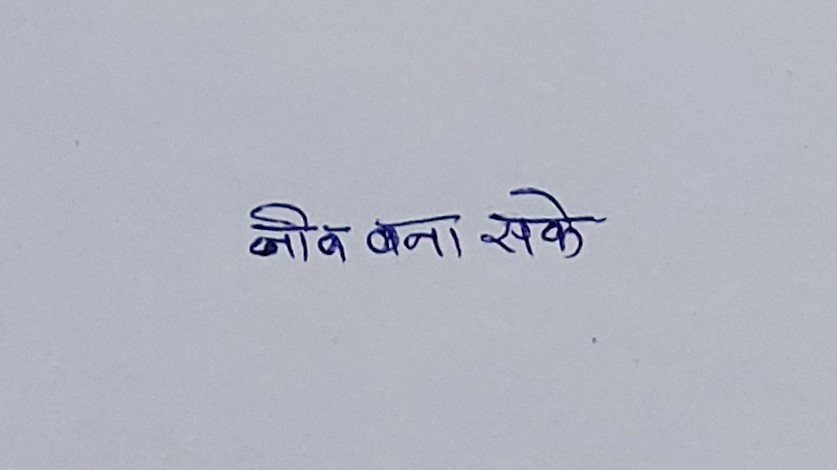 जीव बना सके